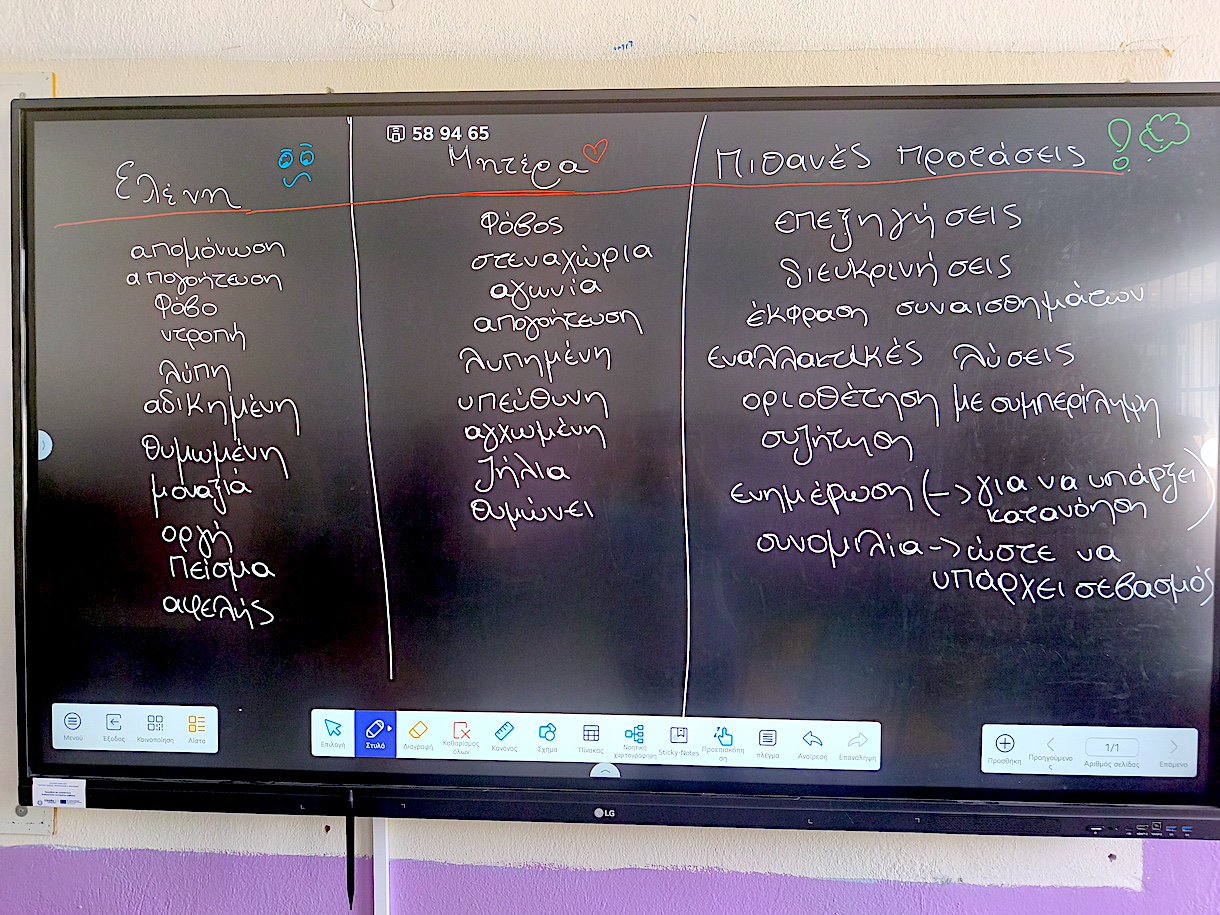 58 94 65
Ελένη
απομόνωση
απογοήτευση
Φόβο
ντροπή
λύπη
αδικημένη
θυμωμένη
μοναξιά
οργή
Πείσμα
αφελής
Μητέρα
Φόβος
στεναχώρια
αγωνία
απογοήτευση
λυπημένη
υπεύθυνη
αγχωμένη
Ζήλια
θυμώνει
Πιθανές προτάσεις
επεξηγήσεις
διευκρινήσεις
έκφραση συναισθημάτων
εναλλακτικές λύσεις
οριοθέτηση με συμπερίληψη
συζήτηση
ενημέρωση (-> για να υπάρξει
κατανόηση)
συνομιλία -> ώστε να
υπάρχει σεβασμός
Μενού
Έξοδος
Κοινοποίηση
Λίστα
Επιλογή
Στυλό
Διαγραφή
Καθαρισμός
όλων
Κανόνας
Σχήμα
Πίνακας
Νοητική
χαρτογράφηση
Sticky-Notes
Προεπισκόπη
ση
πλέγμα
Αναίρεση
Επανάληψη
Προσθήκη
Προηγούμενο
ς
1/1
Αριθμός σελίδας
Επόμενο
LG